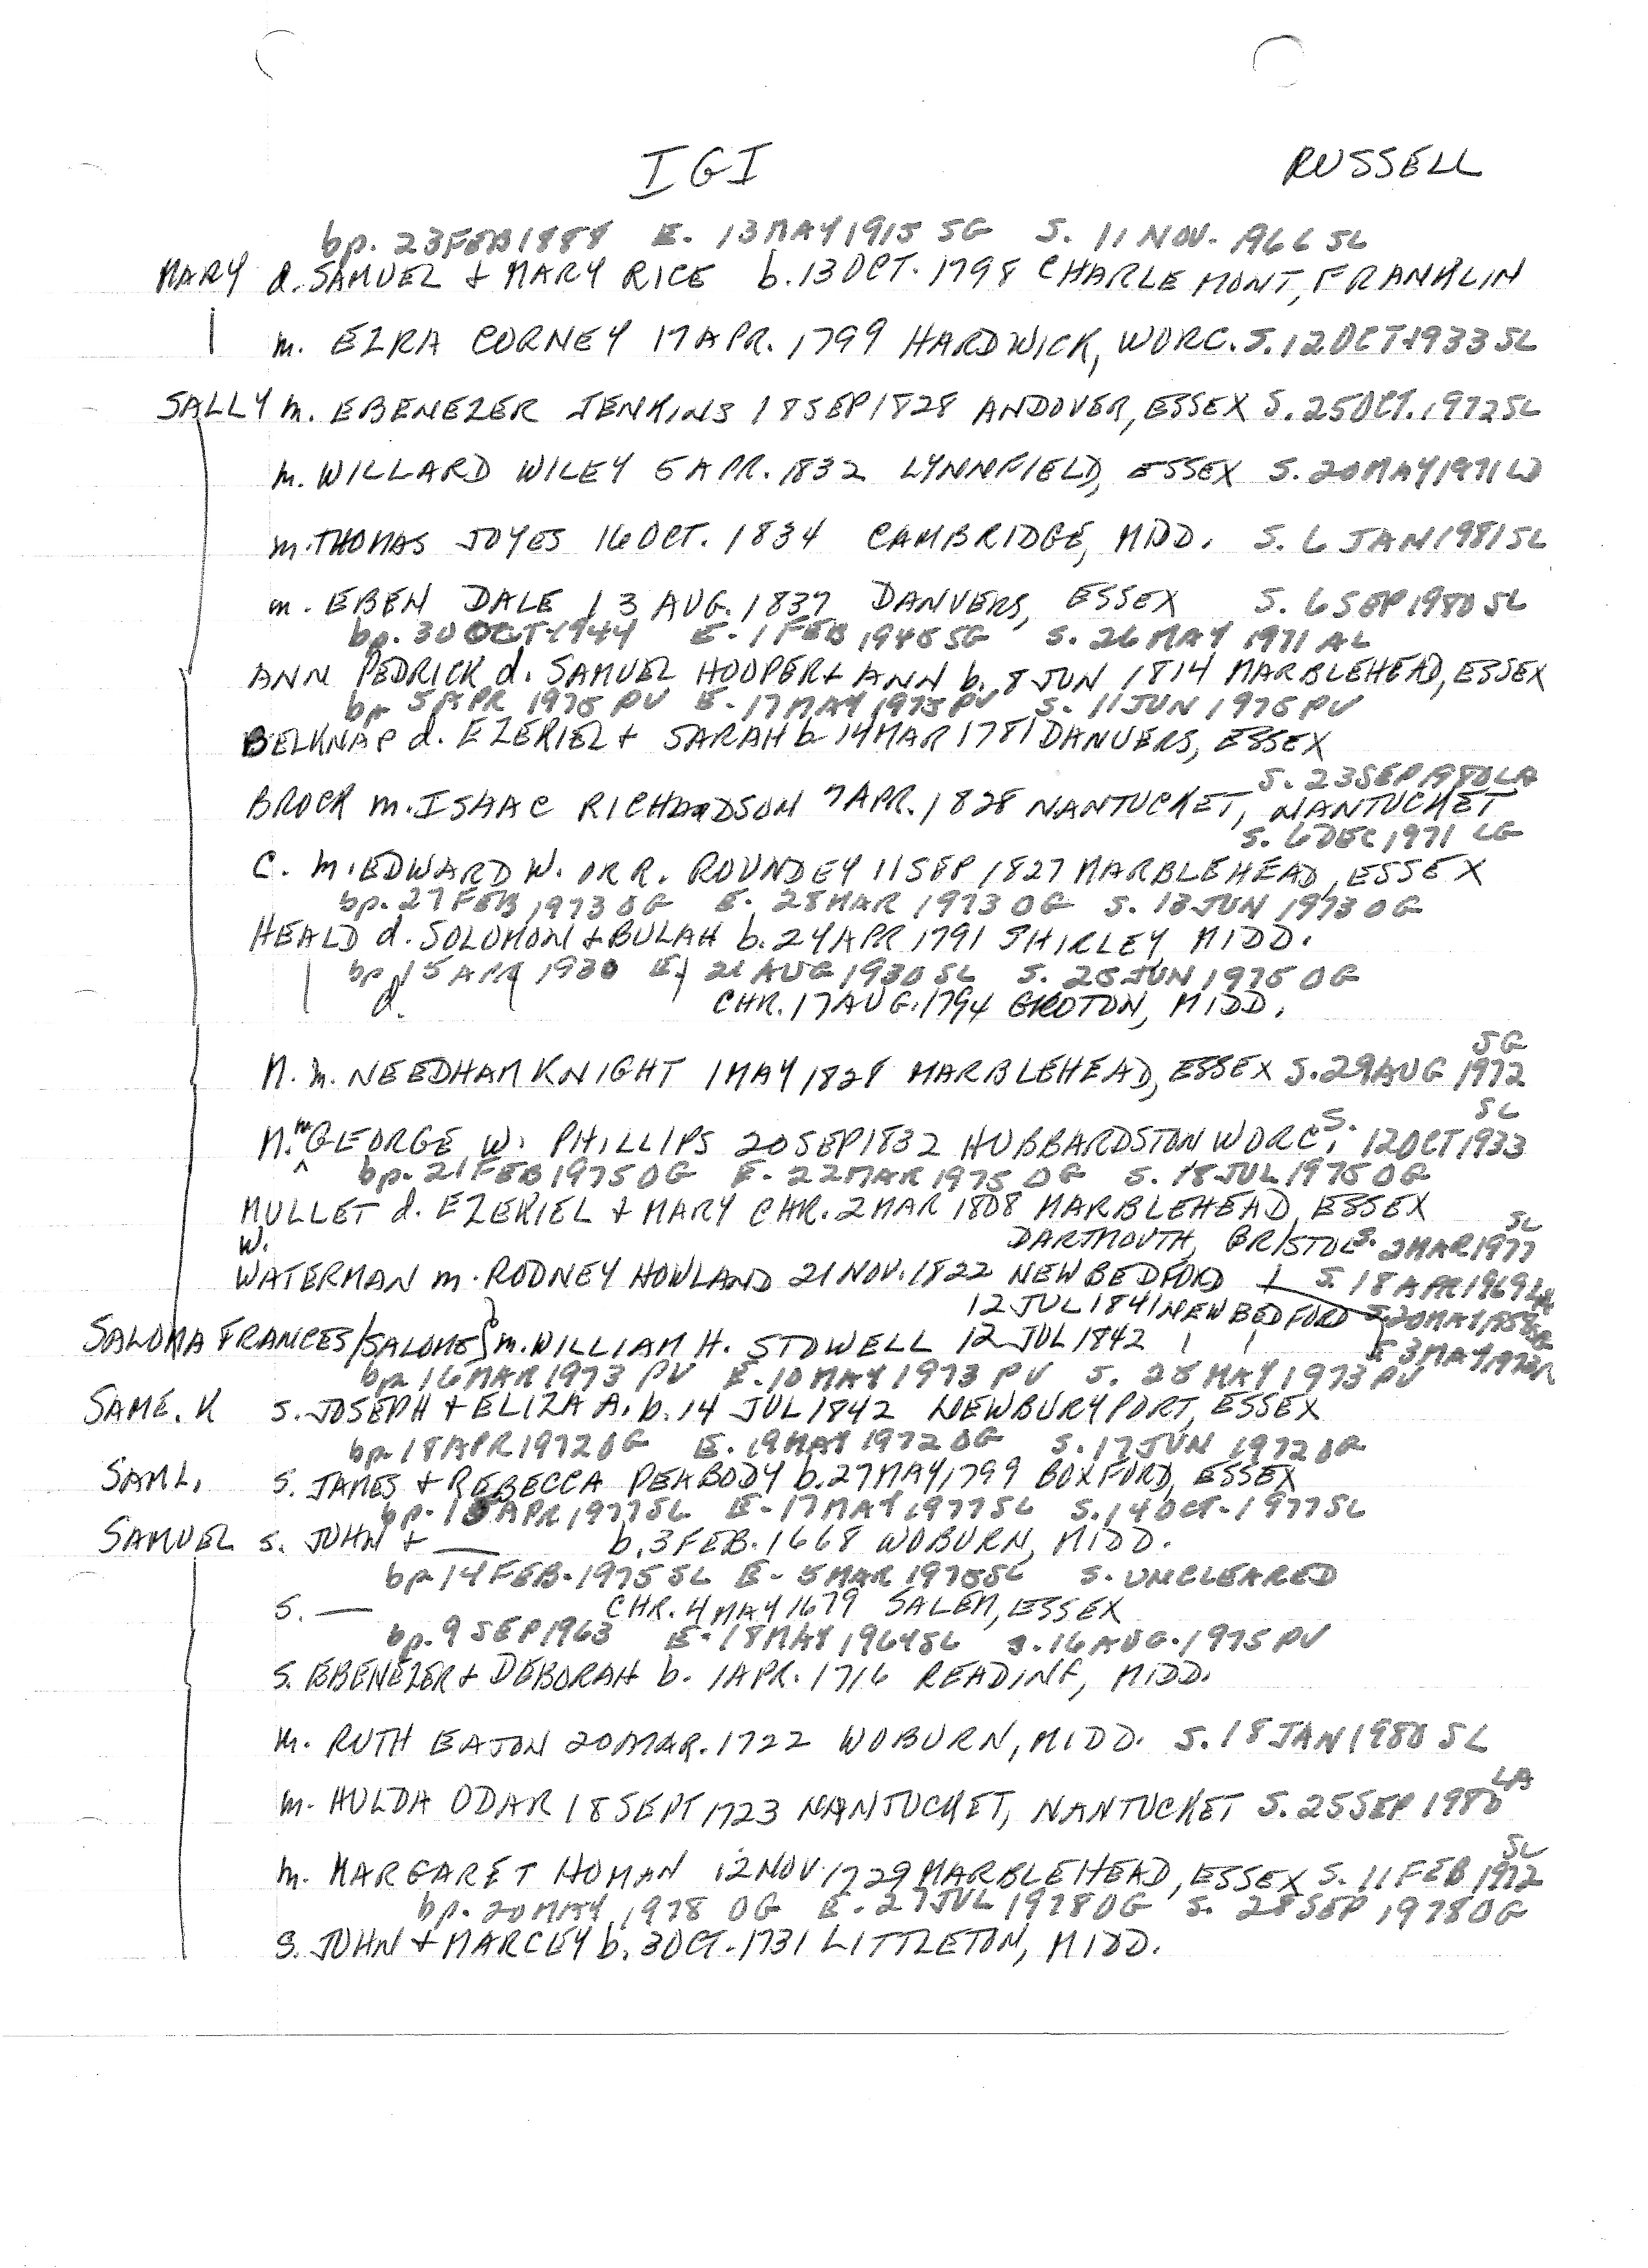 IGI RUSSELL
bp. 23 FEB 1888 E. 13 MAY 1915 SG S. 11 NOV. 1966 SL
MARY d. SAMUEL + MARY RICE b. 13 OCT. 1798 CHARLEMONT, FRANKLIN
m. EZRA CORNEY 17 APR. 1799 HARDWICK, WORC. S. 12 OCT 1933 SL
SALLY m. EBENEZER JENKINS 18 SEP 1828 ANDOVER, ESSEX S. 25 OCT. 1972 SL
m. WILLARD WILEY 5 APR. 1832 LYNNFIELD, ESSEX S. 20 MAY 1971
m. THOMAS JOYES 16 OCT. 1834 CAMBRIDGE, MIDD. S. 6 JAN 1981 SL
m. EBEN DALE 13 AUG. 1837 DANVERS, ESSEX S. 6 SEP 1980 SL
bp. 30 OCT 1944 E. 1 FEB 1945 SG S. 26 MAY 1971 AL
ANN PEDRICK d. SAMUEL HOOPER + ANN b. 8 JUN 1814 MARBLEHEAD, ESSEX
bp 5 APR 1975 PV E. 17 MAY 1975 PV S. 11 JUN 1975 PV
BELKNAP d. EZEKIEL + SARAH b 14 MAR 1781 DANVERS, ESSEX
S. 23 SEP 1980 LA
BROCK m. ISAAC RICHARDSON 7 APR. 1828 NANTUCKET, NANTUCKET
S. 6 DEC 1971 LG
C. m. EDWARD W. OR R. ROUNDEY 11 SEP 1827 MARBLEHEAD, ESSEX
bp. 27 FEB 1973 OG E. 28 MAR 1973 OG S. 13 JUN 1973 OG
HEALD d. SOLOMON + BULAH b. 24 APR 1791 SHIRLEY, MIDD.
bp 15 APR 1930 E. 21 AUG 1930 SL S. 25 JUN 1975 OG
d. CHR. 17 AUG. 1794 GROTON, MIDD.
SG
M. m. NEEDHAM KNIGHT 1 MAY 1828 MARBLEHEAD, ESSEX S. 29 AUG 1972
SL
M. m GEORGE W. PHILLIPS 20 SEP 1832 HUBBARDSTON WORC. S. 12 OCT 1933
bp. 21 FEB 1975 OG E. 22 MAR 1975 OG S. 18 JUL 1975 OG
MULLET d. EZEKIEL + MARY CHR. 2 MAR 1808 MARBLEHEAD, ESSEX
SL
W. DARTMOUTH, BRISTOL S. 2 MAR 1977
WATERMAN m. RODNEY HOWLAND 21 NOV. 1822 NEW BEDFORD S. 18 APR 1969
12 JUL 1841 NEW BEDFORD
SALOMA FRANCES/SALOME} m. WILLIAM H. STOWELL 12 JUL 1842 S 3 MAY 1973
bp 16 MAR 1973 PV E. 10 MAY 1973 PV S. 25 MAY 1973 PV
SAME. K S. JOSEPH + ELIZA A. b. 14 JUL 1842 NEWBURYPORT, ESSEX
bp 18 APR 1972 OG E. 19 MAY 1972 OG S. 17 JUN 1972 OG
SAML. S. JAMES + REBECCA PEABODY b. 27 MAY 1799 BOXFORD, ESSEX
bp. 15 APR 1977 SL E. 17 MAY 1977 SL S. 14 OCT. 1977 SL
SAMUEL S. JOHN + — b. 3 FEB. 1668 WOBURN, MIDD.
bp 14 FEB. 1975 SL E. 5 MAR 1975 SL S. UNCLEARED
S. — CHR. 4 MAY 1679 SALEM, ESSEX
bp. 9 SEP 1963 E. 18 MAY 1964 SL S. 16 AUG. 1975 PV
S. EBENEZER + DEBORAH b. 1 APR. 1716 READING, MIDD.
m. RUTH EATON 20 MAR. 1722 WOBURN, MIDD. S. 18 JAN 1980 SL
LA
m. HULDA ODAR 18 SEPT 1723 NANTUCKET, NANTUCKET S. 25 SEP 1980
SL
m. MARGARET HOMAN 12 NOV. 1729 MARBLEHEAD, ESSEX S. 11 FEB 1972
bp. 20 MAY 1978 OG E. 27 JUL 1978 OG S. 28 SEP 1978 OG
S. JOHN + MARCEY b. 3 OCT. 1731 LITTLETON, MIDD.